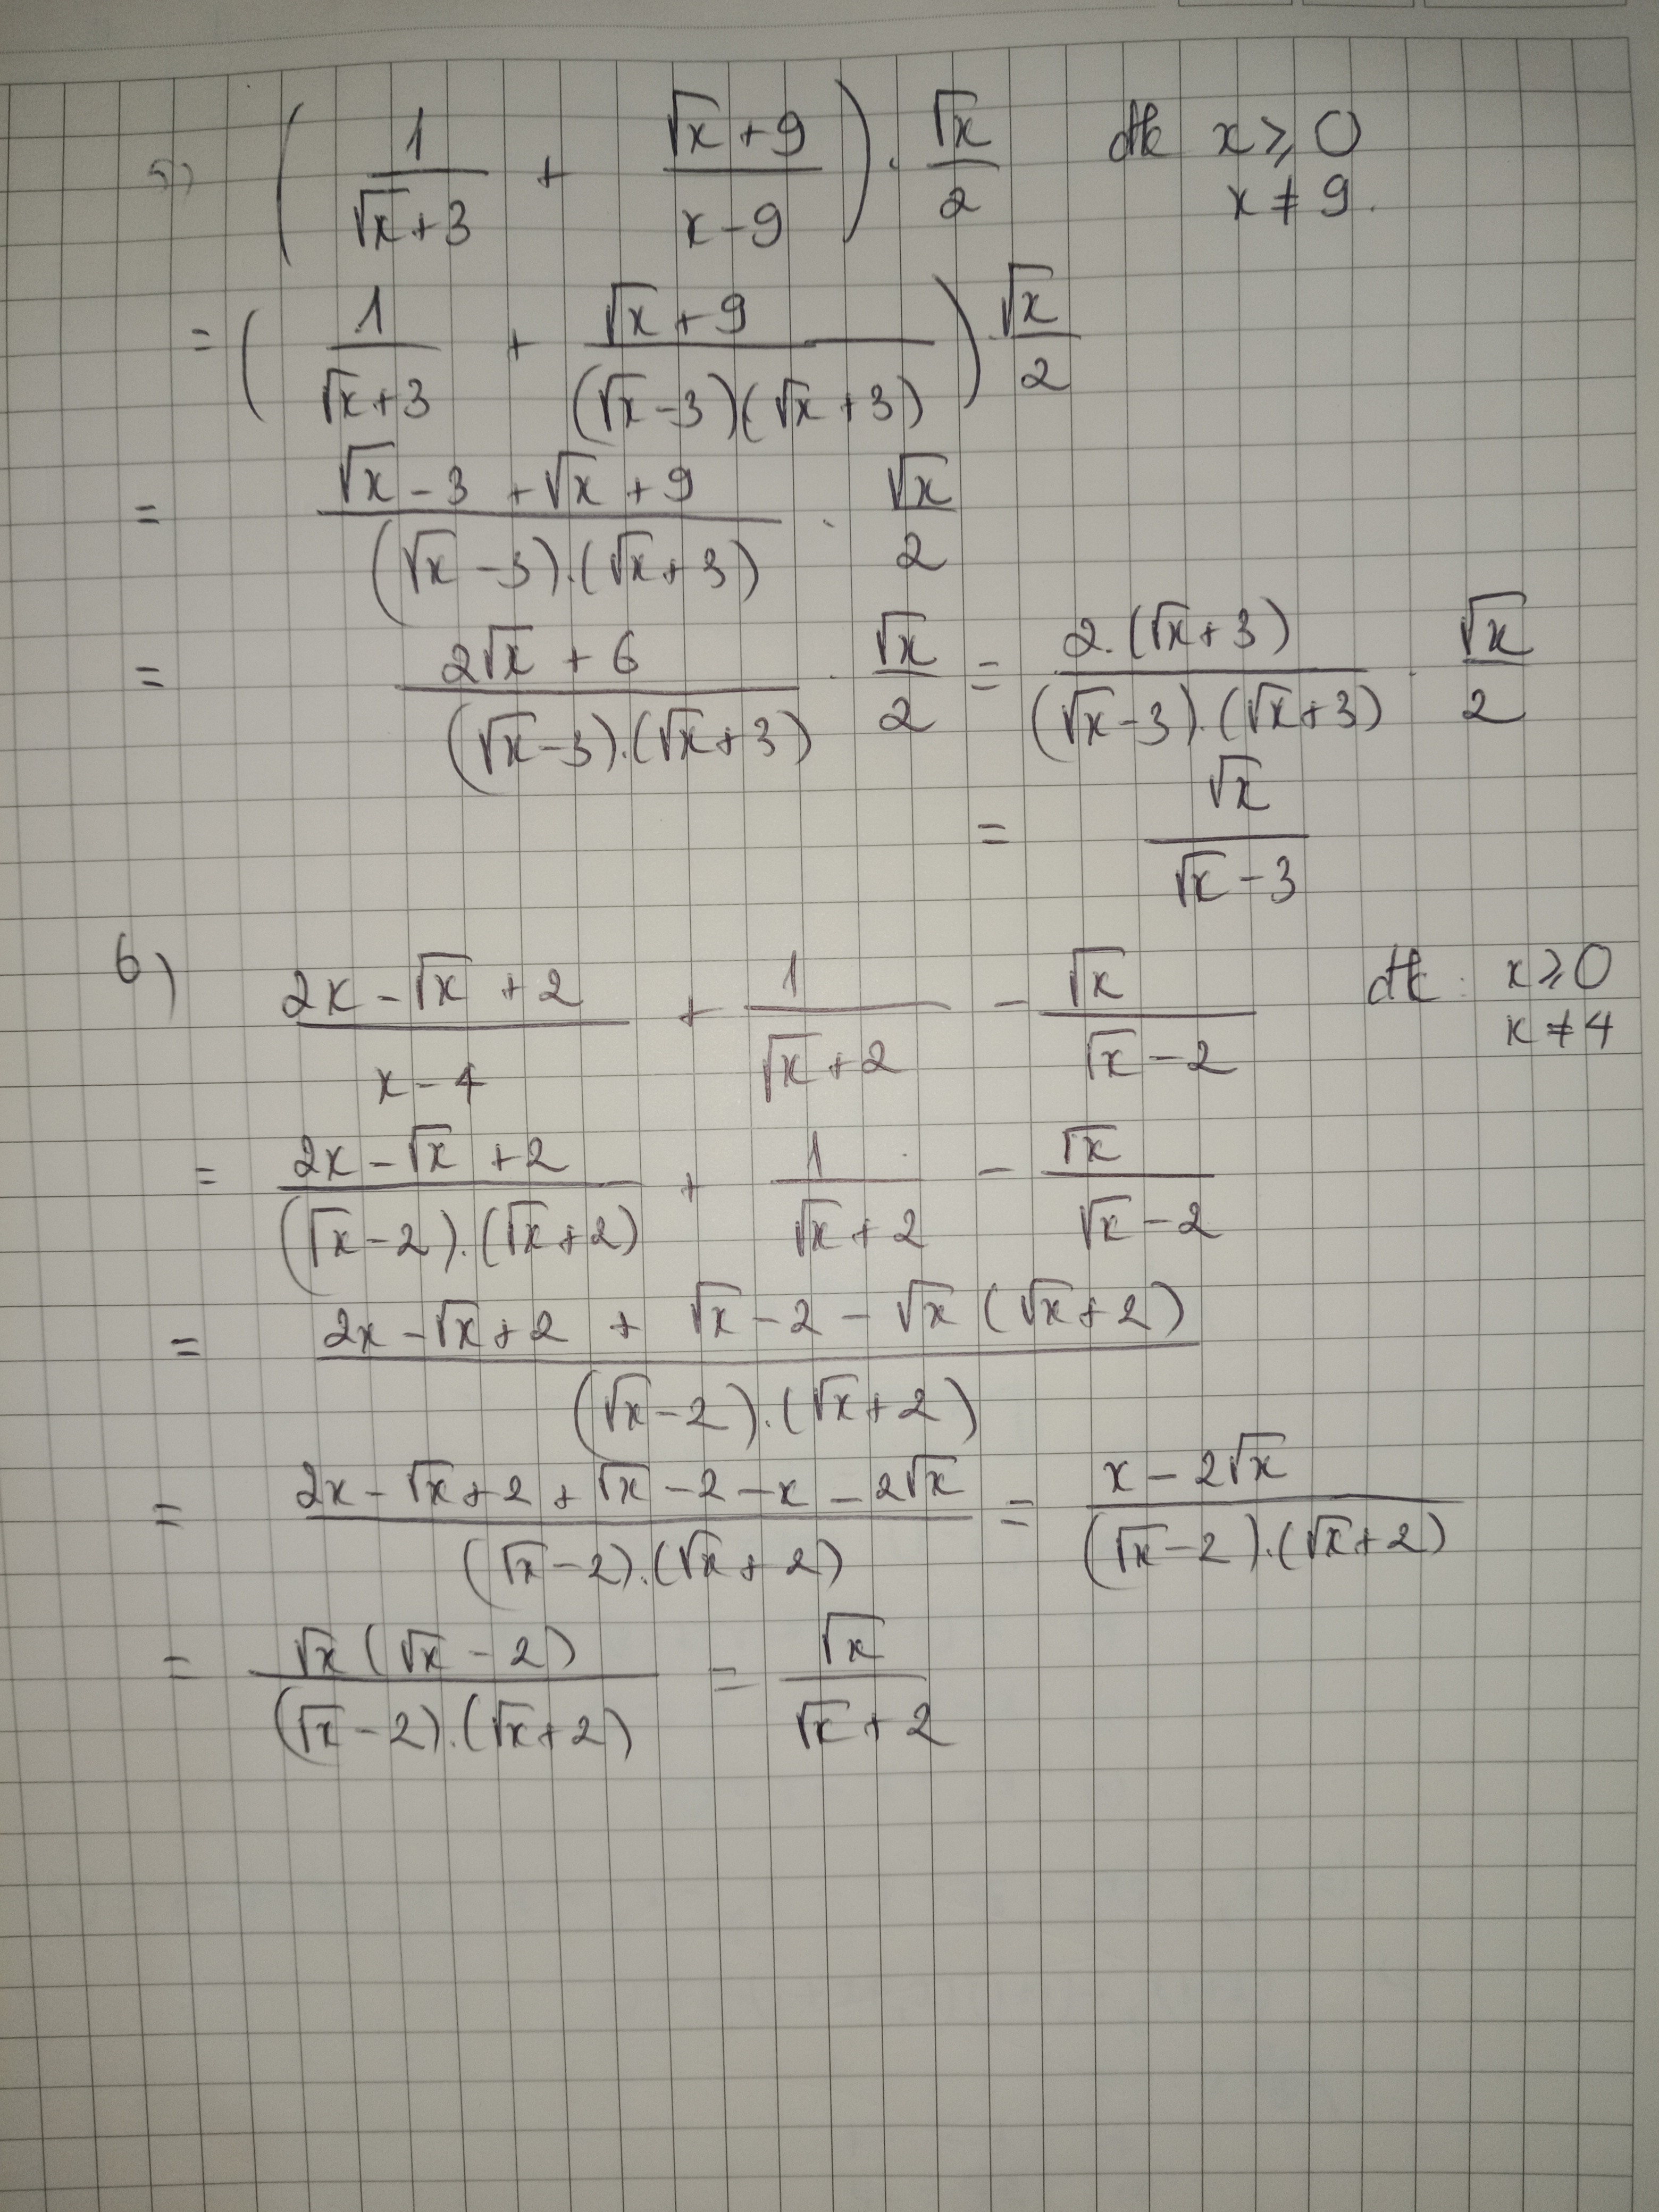 5) ( 1/(√x+3) + (√x+9)/(x-9) ) . √x/2 đk x ⩾ 0
x ≠ 9.
= ( 1/(√x+3) + (√x+9)/((√x-3)(√x+3)) ) √x/2
= (√x-3+√x+9)/((√x-3).(√x+3)) . √x/2
= (2√x+6)/((√x-3).(√x+3)) . √x/2 = (2.(√x+3))/((√x-3).(√x+3)) . √x/2
= √x/(√x-3)
6) (2x-√x+2)/(x-4) + 1/(√x+2) - √x/(√x-2) đk: x ⩾ 0
x ≠ 4
= (2x-√x+2)/((√x-2).(√x+2)) + 1/(√x+2) - √x/(√x-2)
= (2x-√x+2 + √x-2-√x(√x+2))/((√x-2).(√x+2))
= (2x-√x+2+√x-2-x-2√x)/((√x-2).(√x+2)) = (x-2√x)/((√x-2).(√x+2))
= (√x(√x-2))/((√x-2).(√x+2)) = √x/(√x+2)